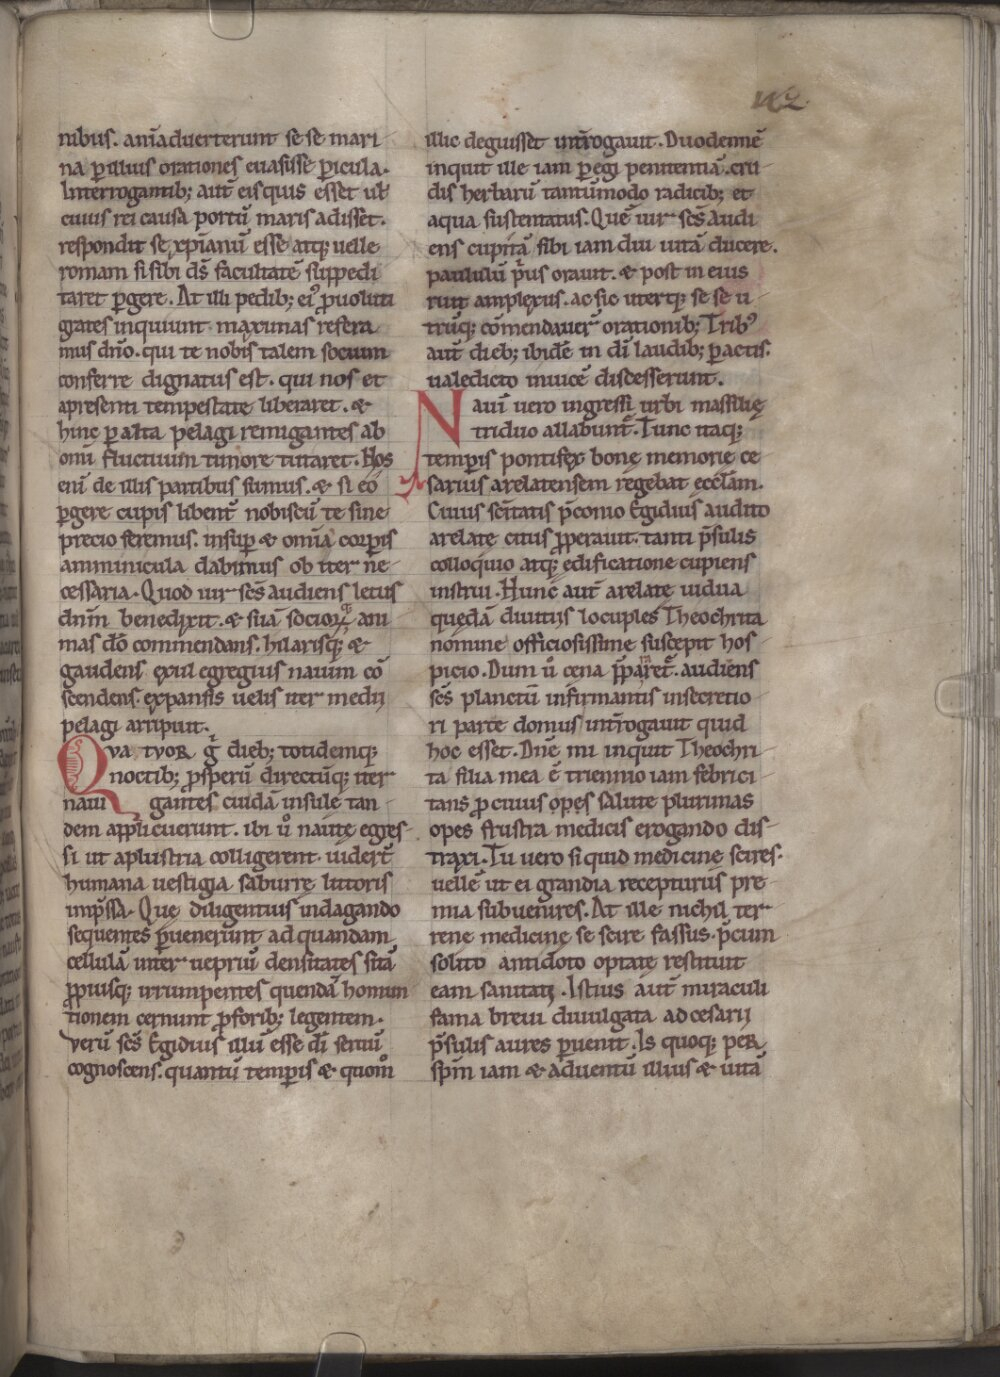 nibus. anīaduerterunt se se mari
na ꝑ illius orationes euasisse ꝑicula.
Interrogantib; aut̄ eis quis esset uł
cuius rei causa portū maris adisset.
respondit se xp̄ianū esse atq; uelle
romam si sibi ds̄ facultatē suppedi
taret ꝑgere. At illi pedib; eiꝰ ꝓuoluti
grates inquiunt maxumas refera
mus dn̄o. qui te nobis talem socium
conferre dignatus est. qui nos et
apresenti tempestate liberaret. &
hinc ꝑ alta pelagi remigantes ab
omī fluctuum timore tutaret. Nos
eni de illis partibus sumus. & si eo
ꝑgere cupis libent̄ nobiscū te sine
precio feremus. insuꝑ & omīa corꝑis
amminicula dabimus ob iter ne
cessaria. Quod uir scs̄ audiens letus
dn̄m benedixit. & suā socioꝝq; ani
mas dō commendans. hilarisq; &
gaudens exul egregius nauim cō
scendens. expansis uelis iter medii
pelagi arripuit.
Qva tvoʀ g̊ dieb; totidemq;
noctib; ꝓsperū directūq; iter
naui gantes cuidā insule tan
dem applicuerunt. ibi ů naute egres
si ut aplustria colligerent. uidert̄
humana uestigia saburre littoris
imp̄ssa. Que diligentius indagando
sequentes ꝑuenerunt ad quandam
cellulā inter ueprium densitates sitā
ꝓpiusq; irrumpentes quendā homun
tionem cernunt ꝓ forib; legentem.
Verū scs̄ Egidius illū esse dī seruū
cognoscens. quantū temꝑis & quom̊
illic deguisset int̄rogauit. Duodennē
inquit ille iam ꝑegi penitentiā. cru
dis herbarū tantūmodo radicib; et
aqua sustentatus. Quē uir scs̄ audi
ens cupitā sibi iam diu uitā ducere.
paululū p̄us orauit. & post in eius
ruit amplexus. ac sic uterq; se se u
trūq; cōmendauer̄ orationib; Tribꝰ
aut̄ dieb; ibidē in dī laudib; ꝑactis.
ualedicto inuicē discesserunt.
Naui vero ingressi urbi massilię
triduo allabunt̄. Tunc itaq;
temꝑis pontifex bonę memorię ce
sarius arelatensem regebat eccl̄am.
Cuius sc̄itatis p̄conio Egidius audito
arelatę citus ꝓperauit. tanti p̄sulis
colloquio atq; edificatione cupiens
instrui. Hunc aut̄ arelatę uidua
quedā diuitiis locuples Theochrita
nomine officiosissime suscepit hos
picio. Dum ů cena p̄pararet̄. audiens
scs̄ planctū infirmantis insecretio
ri parte domus int̄rogauit quid
hoc esset. Dn̄e mi inquit Theochri
ta filia mea ē triennio iam febrici
tans ꝓ cuius opes salute plurimas
opes frustra medicis erogando dis
traxi. Tu vero si quid medicinę scires.
uellē ut ei grandia recepturus pre
mia subuenires. At ille nichil ter
rene medicinę se scire fassus. p̄cum
solito antidoto optatę restituit
eam sanitati. Istius aut̄ miraculi
fama breui diuulgata ad cesarii
p̄sulis aures ꝑuenit. Is quoq; peʀ
sp̄m iam & aduentū illius & uitā